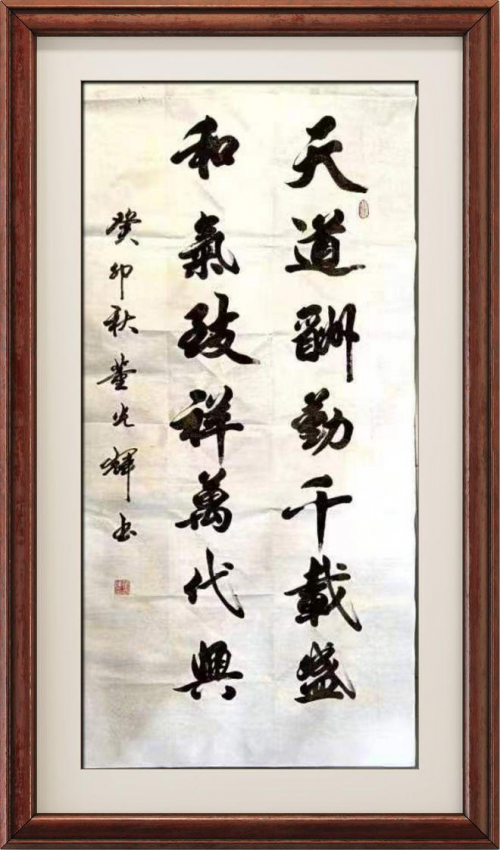 天道酬勤千載盛
和氣致祥萬代興
癸卯秋董光輝书